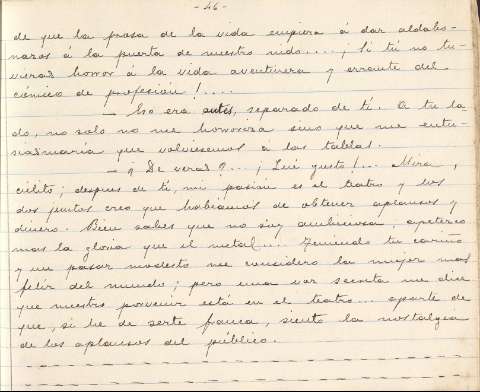 - 46 -
de que la prosa de la vida empiera á dar aldabo-
nazos á la puerta de nuestro nido....¡Si tú no tu-
vieras horror á la vida aventurera y errante del
cómico de profesión!....
— Eso era antes, separado de tí. A tu la
do, no solo no me horroriza sino que me entu-
siasmaría que volviesemos á las tablas.
— ¿De veras?... ¡Qué gusto!... Mira,
cielito; despues de tí, mi pasion es el teatro y los
dos juntos creo que habiamos de obtener aplausos y
dinero. Bien sabes que no soy ambiciosa, apetezco
mas la gloria que el metal.... Teniendo tu cariño
y un pasar modesto me considero la mujer mas
feliz del mundo; pero una voz secreta me dice
que nuestro porvenir está en el teatro... aparte de
que, si he de serte franca, siento la nostalgia
de los aplausos del público.